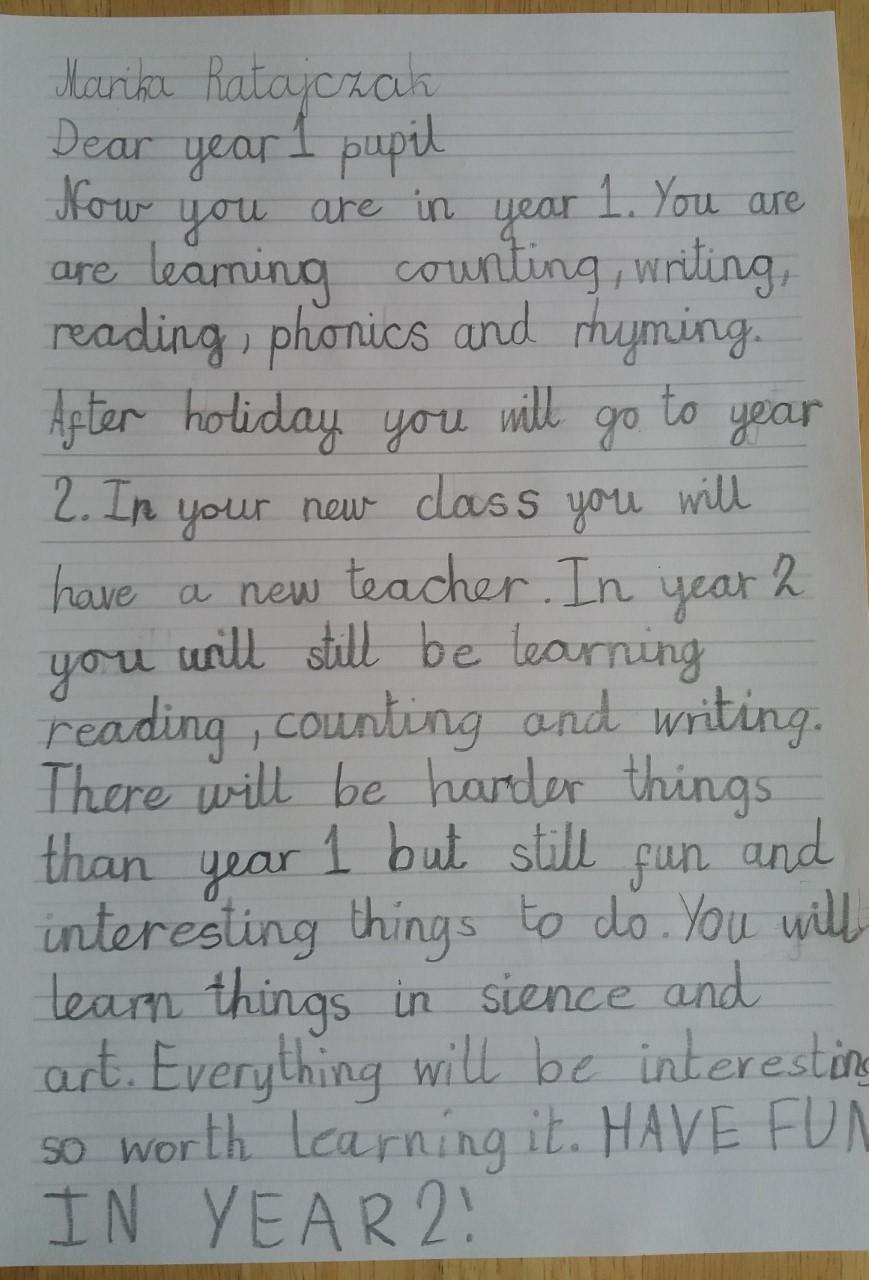 Marika Ratajczak
Dear year 1 pupil
Now you are in year 1. You are
are learning counting, writing,
reading, phonics and rhyming.
After holiday you will go to year
2. In your new class you will
have a new teacher. In year 2
you will still be learning
reading, counting and writing.
There will be harder things
than year 1 but still fun and
interesting things to do. You will
learn things in sience and
art. Everything will be interesting
so worth learning it. HAVE FUN
IN YEAR 2!